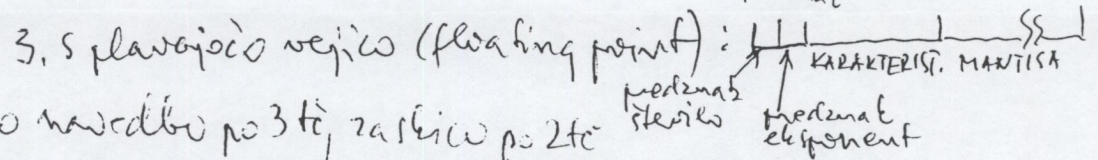 3. s plavajočo vejico (floating point):
KARAKTERIST. MANTISA
predznak število
predznak eksponent
za navedbo po 3 tč, za skico po 2 tč